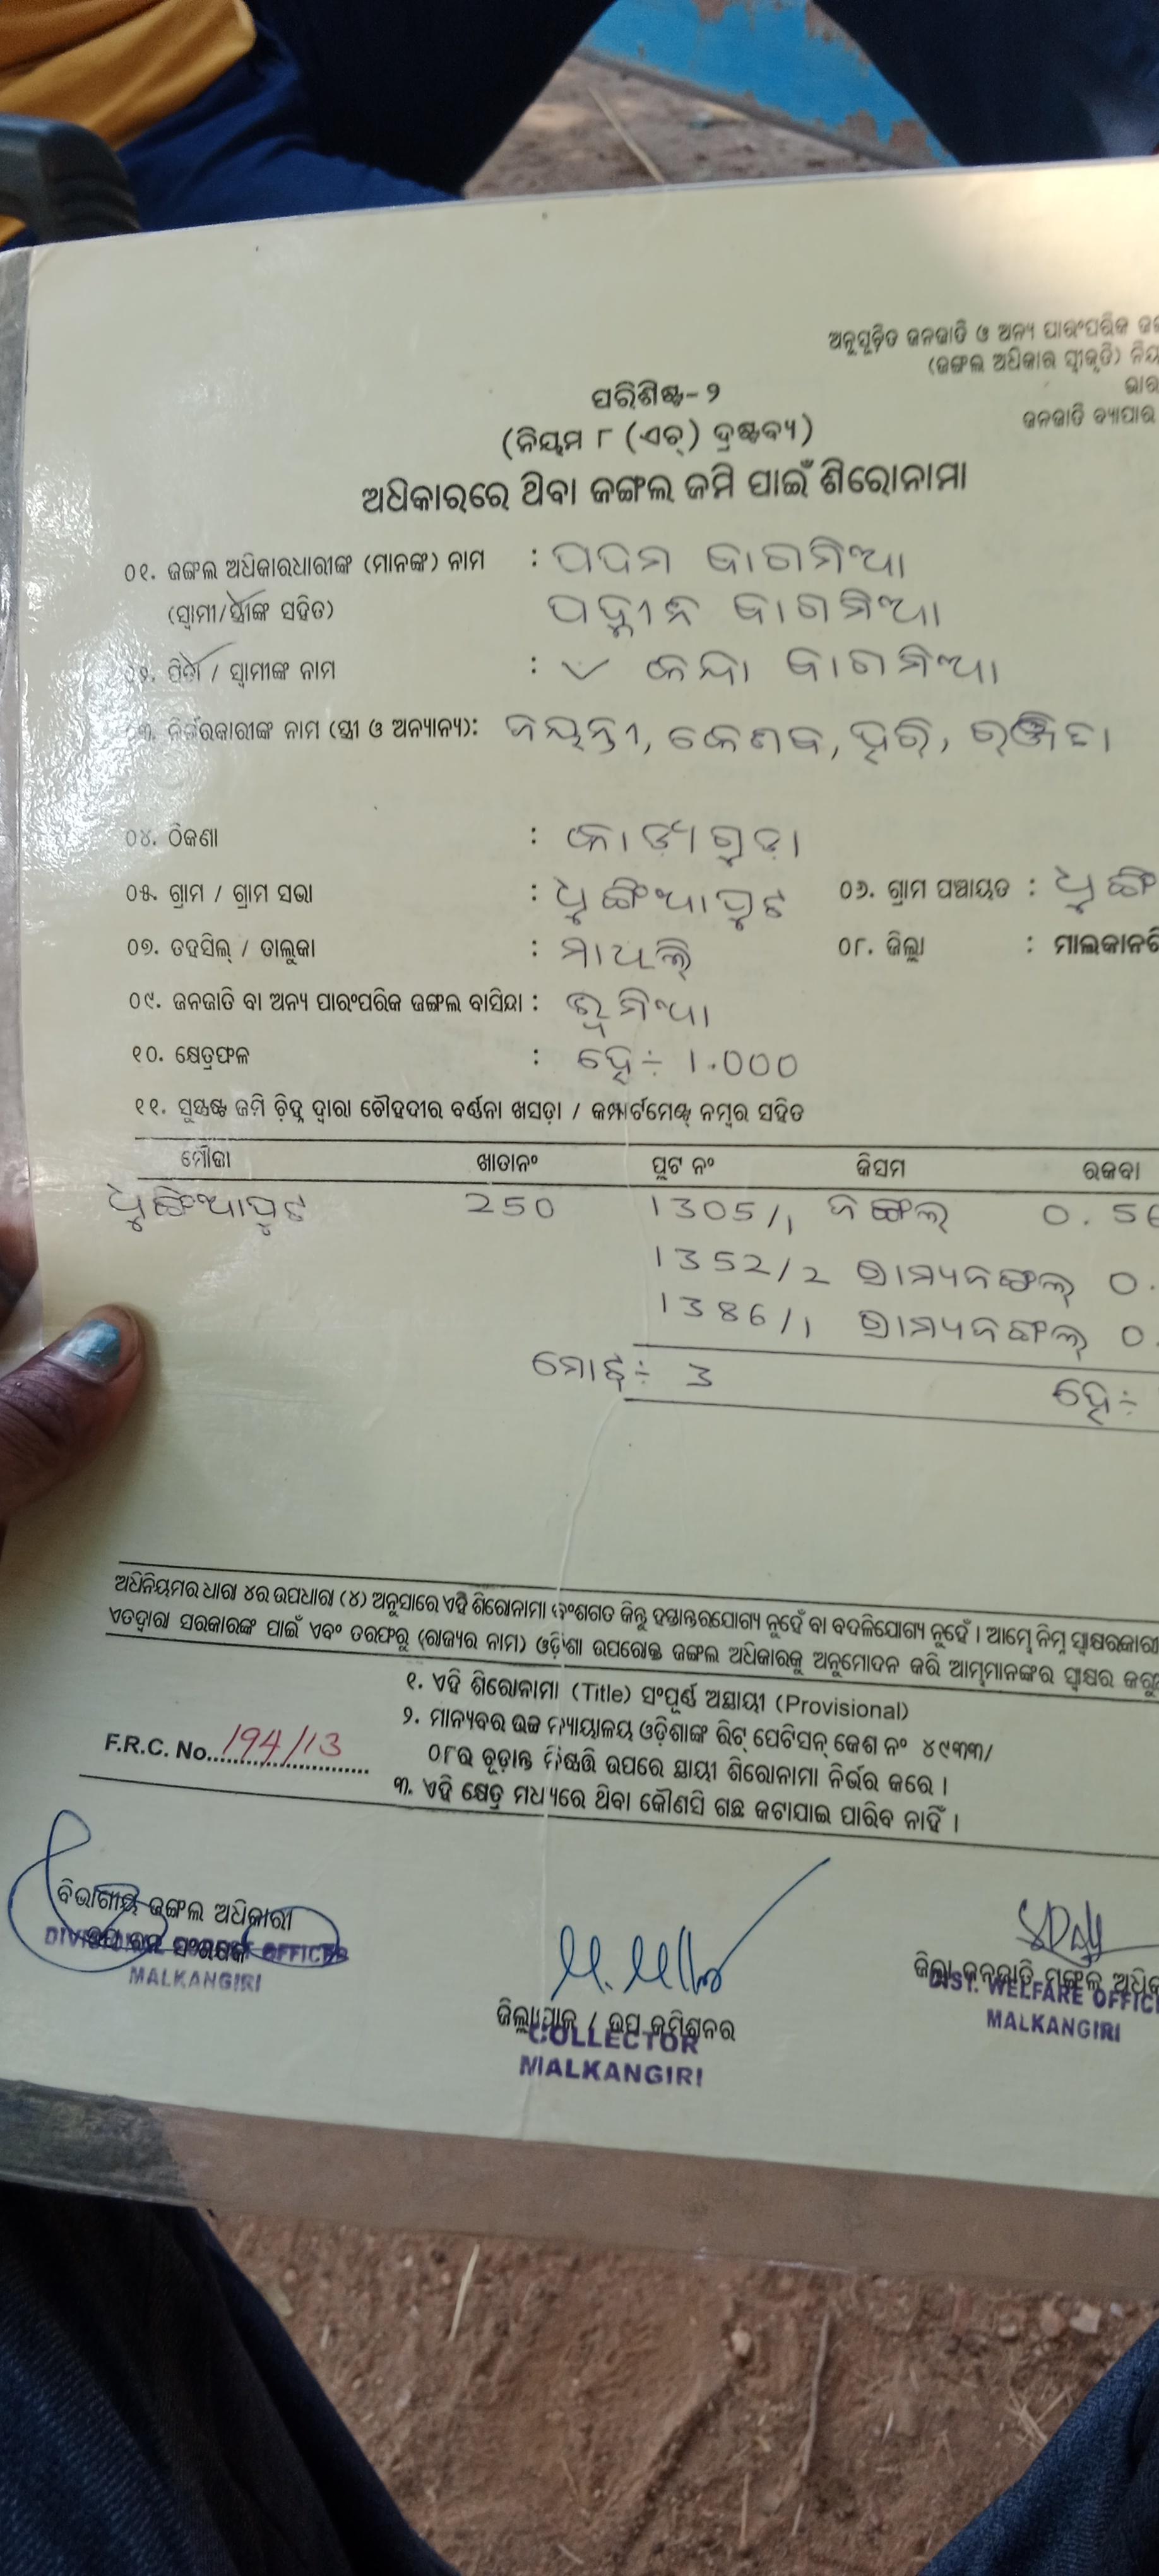 ଅନୁସୂଚିତ ଜନଜାତି ଓ ଅନ୍ୟ ପାରଂପରିକ
(ଜଙ୍ଗଲ ଅଧିକାର ସ୍ୱୀକୃତି)
ଜନଜାତି ବ୍ୟାପାର
ପରିଶିଷ୍ଟ-୨
(ନିୟମ ୮ (ଏଚ୍) ଦ୍ରଷ୍ଟବ୍ୟ)
ଅଧିକାରରେ ଥିବା ଜଙ୍ଗଲ ଜମି ପାଇଁ ଶିରୋନାମା
୦୧. ଜଙ୍ଗଲ ଅଧିକାରଧାରୀଙ୍କ (ମାନଙ୍କ) ନାମ : ପଦମ ବାଗମିଆ
(ସ୍ୱାମୀ/ସ୍ତ୍ରୀଙ୍କ ସହିତ) ବାଗମିଆ
୦୨. ପିତା / ସ୍ୱାମୀଙ୍କ ନାମ : ବାଗମିଆ
୦୩. ନିର୍ଭରକାରୀଙ୍କ ନାମ (ସ୍ତ୍ରୀ ଓ ଅନ୍ୟାନ୍ୟ): ଜୟନ୍ତୀ, କେଶବ, ହରି,
୦୪. ଠିକଣା :
୦୫. ଗ୍ରାମ / ଗ୍ରାମ ସଭା : ଧୁଙ୍ଗିଆପୁଟ ୦୬. ଗ୍ରାମ ପଞ୍ଚାୟତ :
୦୭. ତହସିଲ୍ / ତାଲୁକା : ମାଥିଲି ୦୮. ଜିଲ୍ଲା :
୦୯. ଜନଜାତି ବା ଅନ୍ୟ ପାରଂପରିକ ଜଙ୍ଗଲ ବାସିନ୍ଦା : ଭୂମିଆ
୧୦. କ୍ଷେତ୍ରଫଳ : ହେ÷ 1.000
୧୧. ସୁସ୍ପଷ୍ଟ ଜମି ଚିହ୍ନ ଦ୍ୱାରା ଚୌହଦୀର ବର୍ଣ୍ଣନା ଖସଡ଼ା / କମ୍ପାର୍ଟମେଣ୍ଟ ନମ୍ବର ସହିତ
ମୌଜା ଖାତାନଂ ପ୍ଲଟ ନଂ କିସମ ରକବା
ଧୁଙ୍ଗିଆପୁଟ 250 1305/1 ଜଙ୍ଗଲ
1352/2 ଗ୍ରାମ୍ୟଜଙ୍ଗଲ୍
1386/1 ଗ୍ରାମ୍ୟଜଙ୍ଗଲ୍
ମୋଟ÷ 3 ହେ÷
ଅଧିନିୟମର ଧାରା ୪ର ଉପଧାରା (୪) ଅନୁସାରେ ଏହି ଶିରୋନାମା ବଂଶଗତ କିନ୍ତୁ ହସ୍ତାନ୍ତରଯୋଗ୍ୟ ନୁହେଁ ବା ବଦଳିଯୋଗ୍ୟ ନୁହେଁ । ଆମ୍ଭେ ନିମ୍ନ ସ୍ୱାକ୍ଷରକାରୀ
ଏତଦ୍ୱାରା ସରକାରଙ୍କ ପାଇଁ ଏବଂ ତରଫରୁ (ରାଜ୍ୟର ନାମ) ଓଡ଼ିଶା ଉପରୋକ୍ତ ଜଙ୍ଗଲ ଅଧିକାରକୁ ଅନୁମୋଦନ କରି ଆମ୍ଭମାନଙ୍କର ସ୍ୱାକ୍ଷର
୧. ଏହି ଶିରୋନାମା (Title) ସଂପୂର୍ଣ୍ଣ ଅସ୍ଥାୟୀ (Provisional)
୨. ମାନ୍ୟବର ଉଚ୍ଚ ନ୍ୟାୟାଳୟ ଓଡ଼ିଶାଙ୍କ ରିଟ୍ ପେଟିସନ୍ କେଶ ନଂ ୪୯୩୩/
୦୮ର ଚୂଡ଼ାନ୍ତ ନିଷ୍ପତ୍ତି ଉପରେ ସ୍ଥାୟୀ ଶିରୋନାମା ନିର୍ଭର କରେ ।
F.R.C. No. 194/13
୩. ଏହି କ୍ଷେତ୍ର ମଧ୍ୟରେ ଥିବା କୌଣସି ଗଛ କଟାଯାଇ ପାରିବ ନାହିଁ ।
ବିଭାଗୀୟ ଜଙ୍ଗଲ ଅଧିକାରୀ
DIVISIONAL FOREST OFFICER
MALKANGIRI
ଜିଲ୍ଲାପାଳ / ଉପ କମିଶନର
COLLECTOR
MALKANGIRI
ଜିଲ୍ଲା ଜନଜାତି ମଙ୍ଗଳ
DIST. WELFARE
MALKANGIRI